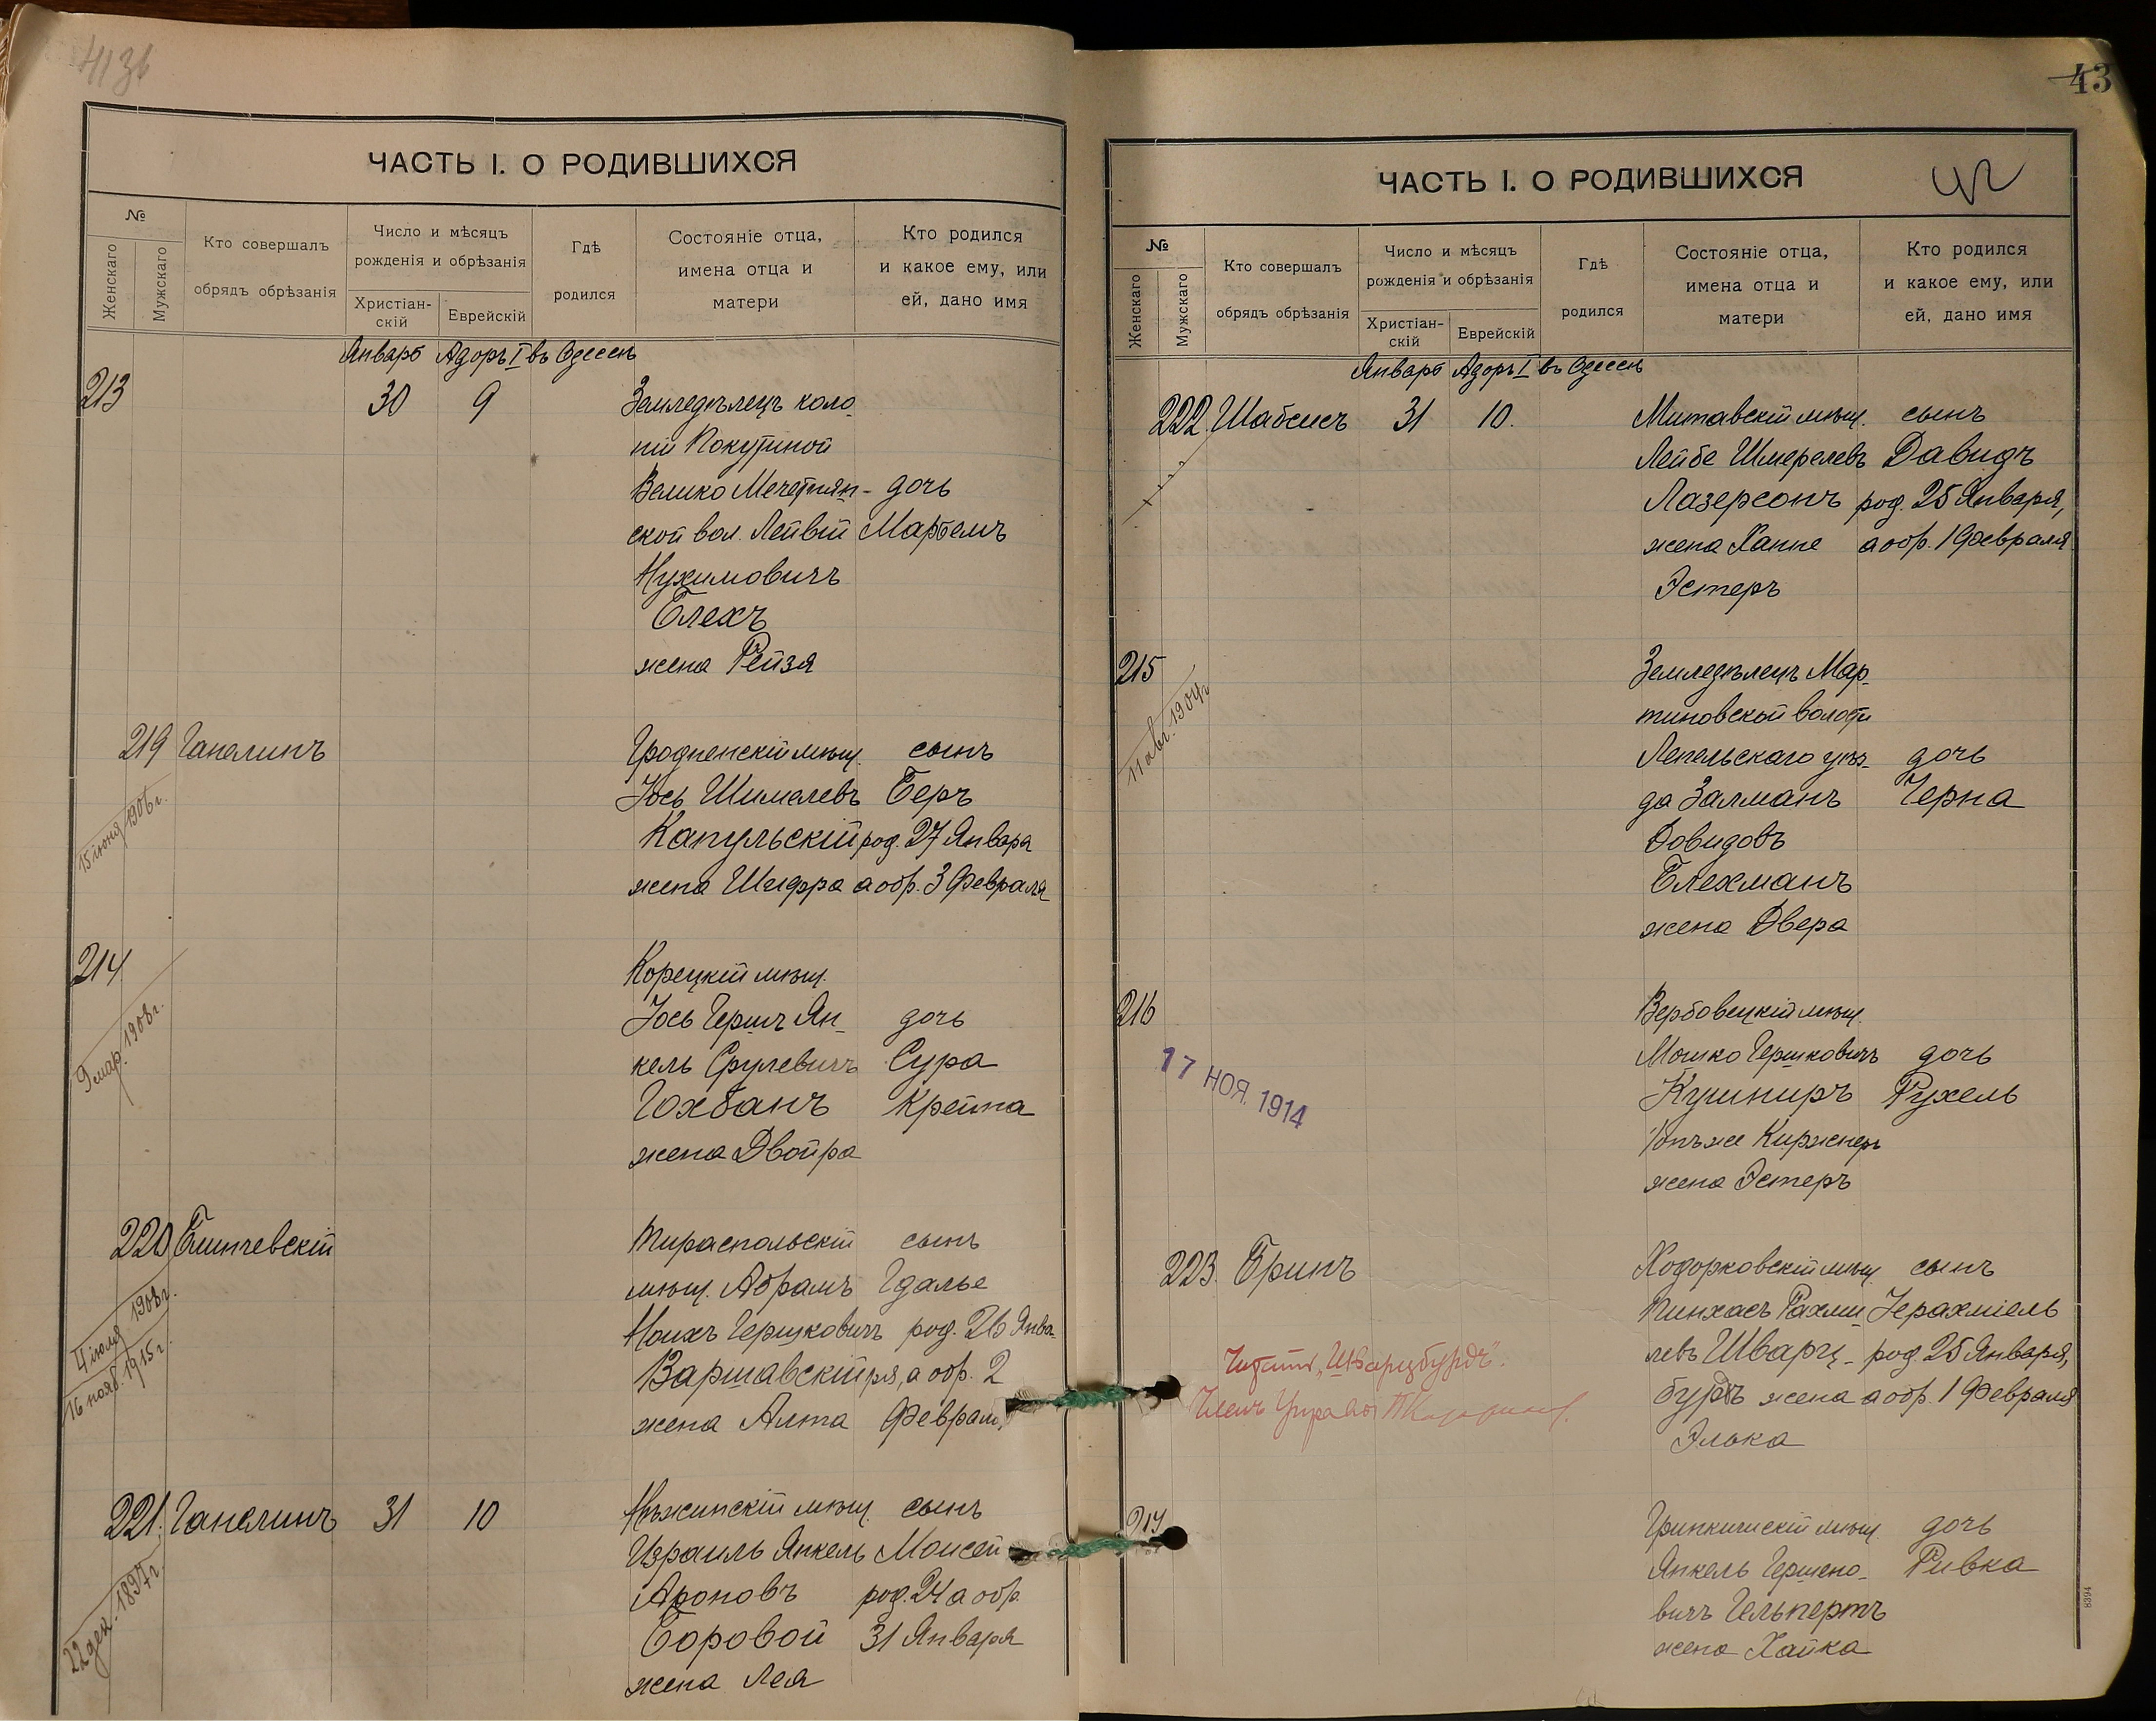 ЧАСТЬ I. О РОДИВШИХСЯ
№
Женскаго
Мужскаго
Кто совершалъ
обрядъ обрѣзанія
Число и мѣсяцъ
рожденія и обрѣзанія
Христіан-
скій
Еврейскій
Гдѣ
родился
Состояніе отца,
имена отца и
матери
Кто родился
и какое ему, или
ей, дано имя
Январь Адоръ I въ Одессѣ
213 30 9 Земледѣлецъ коло-
ніи Покутиной
Велико Мечетнян- дочь
ской вол. Лейвій Марьемъ
Нухимовичъ
Блехъ
жена Рейзя
219 Гапелинъ Гродненскій мѣщ. сынъ
Іось Шимелевъ Беръ
Капульскій род. 27 Января
жена Шифра а обр. 3 Февраля
15 іюня 1906 г.
214 Корецкій мѣщ.
Іось Гершъ Ян- дочь
кель Срулевичъ Сура
Гохбанъ Крейна
жена Двойра
9 мар. 1908 г.
220 Блинчевскій Тираспольскій сынъ
мѣщ. Абрамъ Гдалье
Моихъ Гершковичъ род. 26 Янва-
Варшавскій ря, а обр. 2
жена Алта Февраля
4 іюля 1908 г.
16 нояб. 1915 г.
221. Гапелинъ 31 10 Нѣжинскій мѣщ. сынъ
Израиль Янкель Моисей
Ароновъ род. 24 а обр.
Боровой 31 Января
жена Лея
22 дек. 1897 г.
43
ЧАСТЬ I. О РОДИВШИХСЯ
42
№
Женскаго
Мужскаго
Кто совершалъ
обрядъ обрѣзанія
Число и мѣсяцъ
рожденія и обрѣзанія
Христіан-
скій
Еврейскій
Гдѣ
родился
Состояніе отца,
имена отца и
матери
Кто родился
и какое ему, или
ей, дано имя
Январь Адоръ I въ Одессѣ
222. Шабсисъ 31 10. Митавскій мѣщ. сынъ
Лейбе Шмерелевъ Давидъ
Лазерсонъ род. 25 Января,
жена Ханне а обр. 1 Февраля
Эстеръ
215 Земледѣлецъ Мар-
тиновской волости
Лепельскаго уѣз- дочь
да Залманъ Черна
Довидовъ
Блехманъ
жена Двера
11 авг. 1904 г.
216 Вербовецкій мѣщ.
Мошко Гершковичъ дочь
Кушниръ Рухель
онъ же Киржнеръ
жена Эстеръ
17 НОЯ. 1914
223. Бринъ Ходорковскій мѣщ. сынъ
Пинхасъ Рахми- Іерахміель
левъ Шварц- род. 25 Января,
бурдъ жена а обр. 1 Февраля
Элька
Читать „Шварцбурдъ".
Членъ Управы
217 Гринкишскій мѣщ. дочь
Янкель Гершено- Ривка
вичъ Гельпертъ
жена Хайка
8394